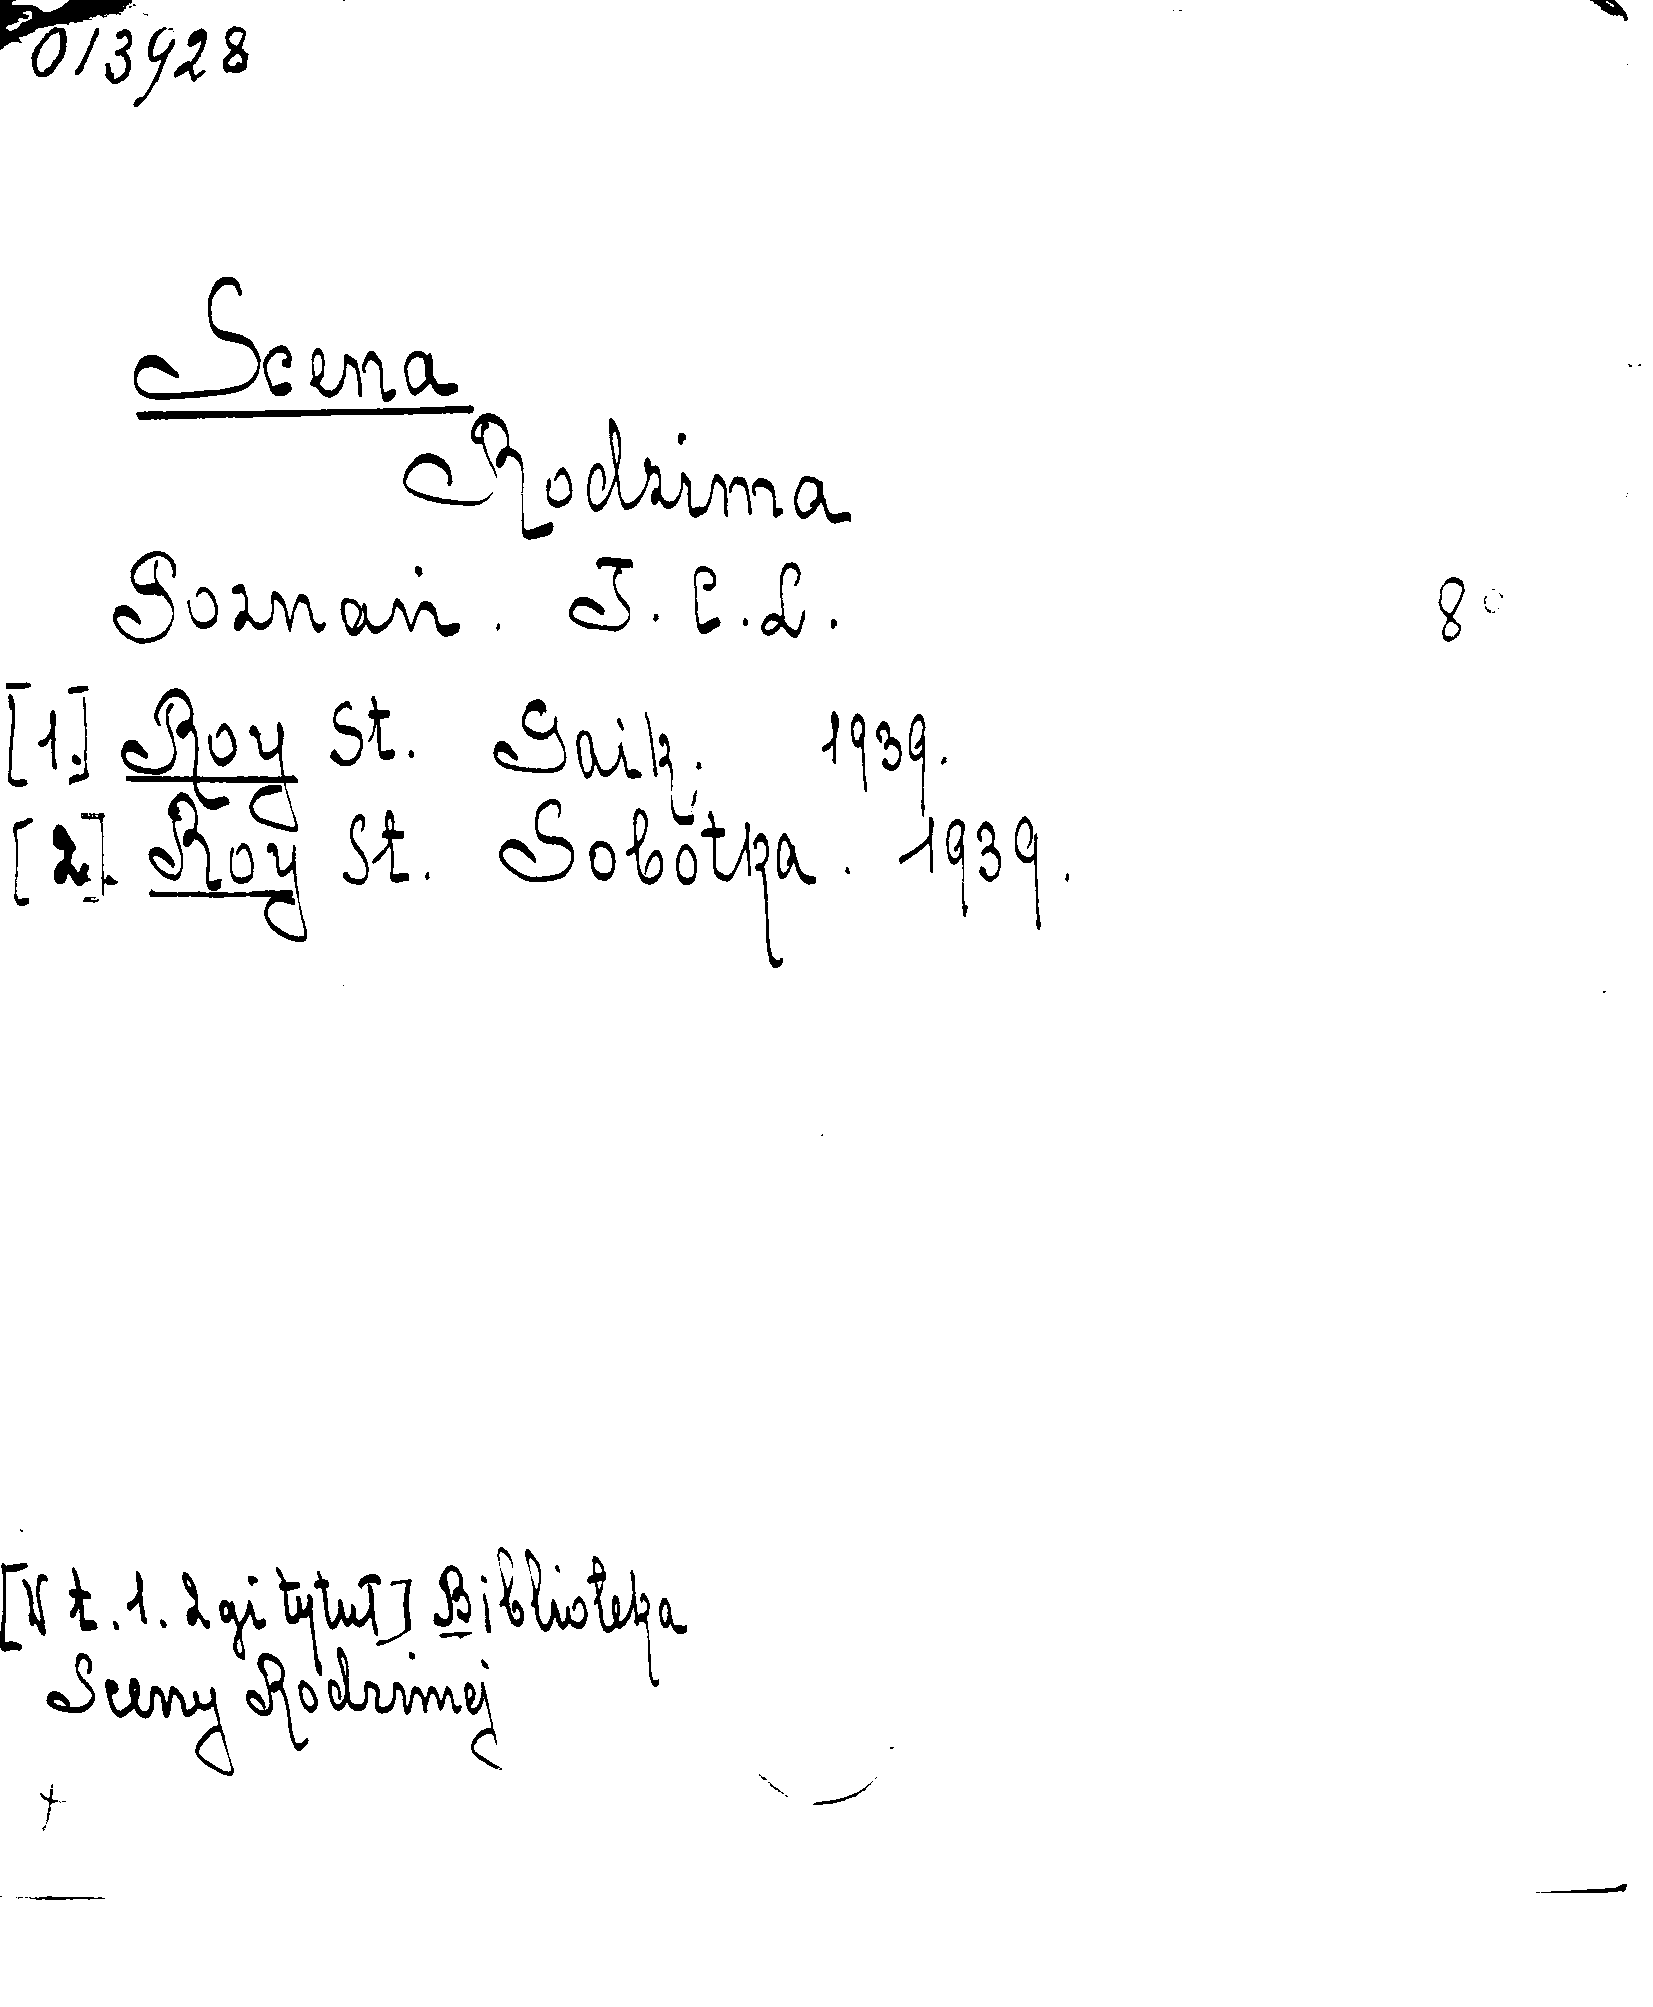 013928
Scena
Rodzima
Poznań. T.C.L. 8°
[1.] Roy St. Gaik. 1939.
[2]. Roy St. Sobótka. 1939.
[W t. 1. 2gi tytuł] Biblioteka
Sceny Rodzimej
+